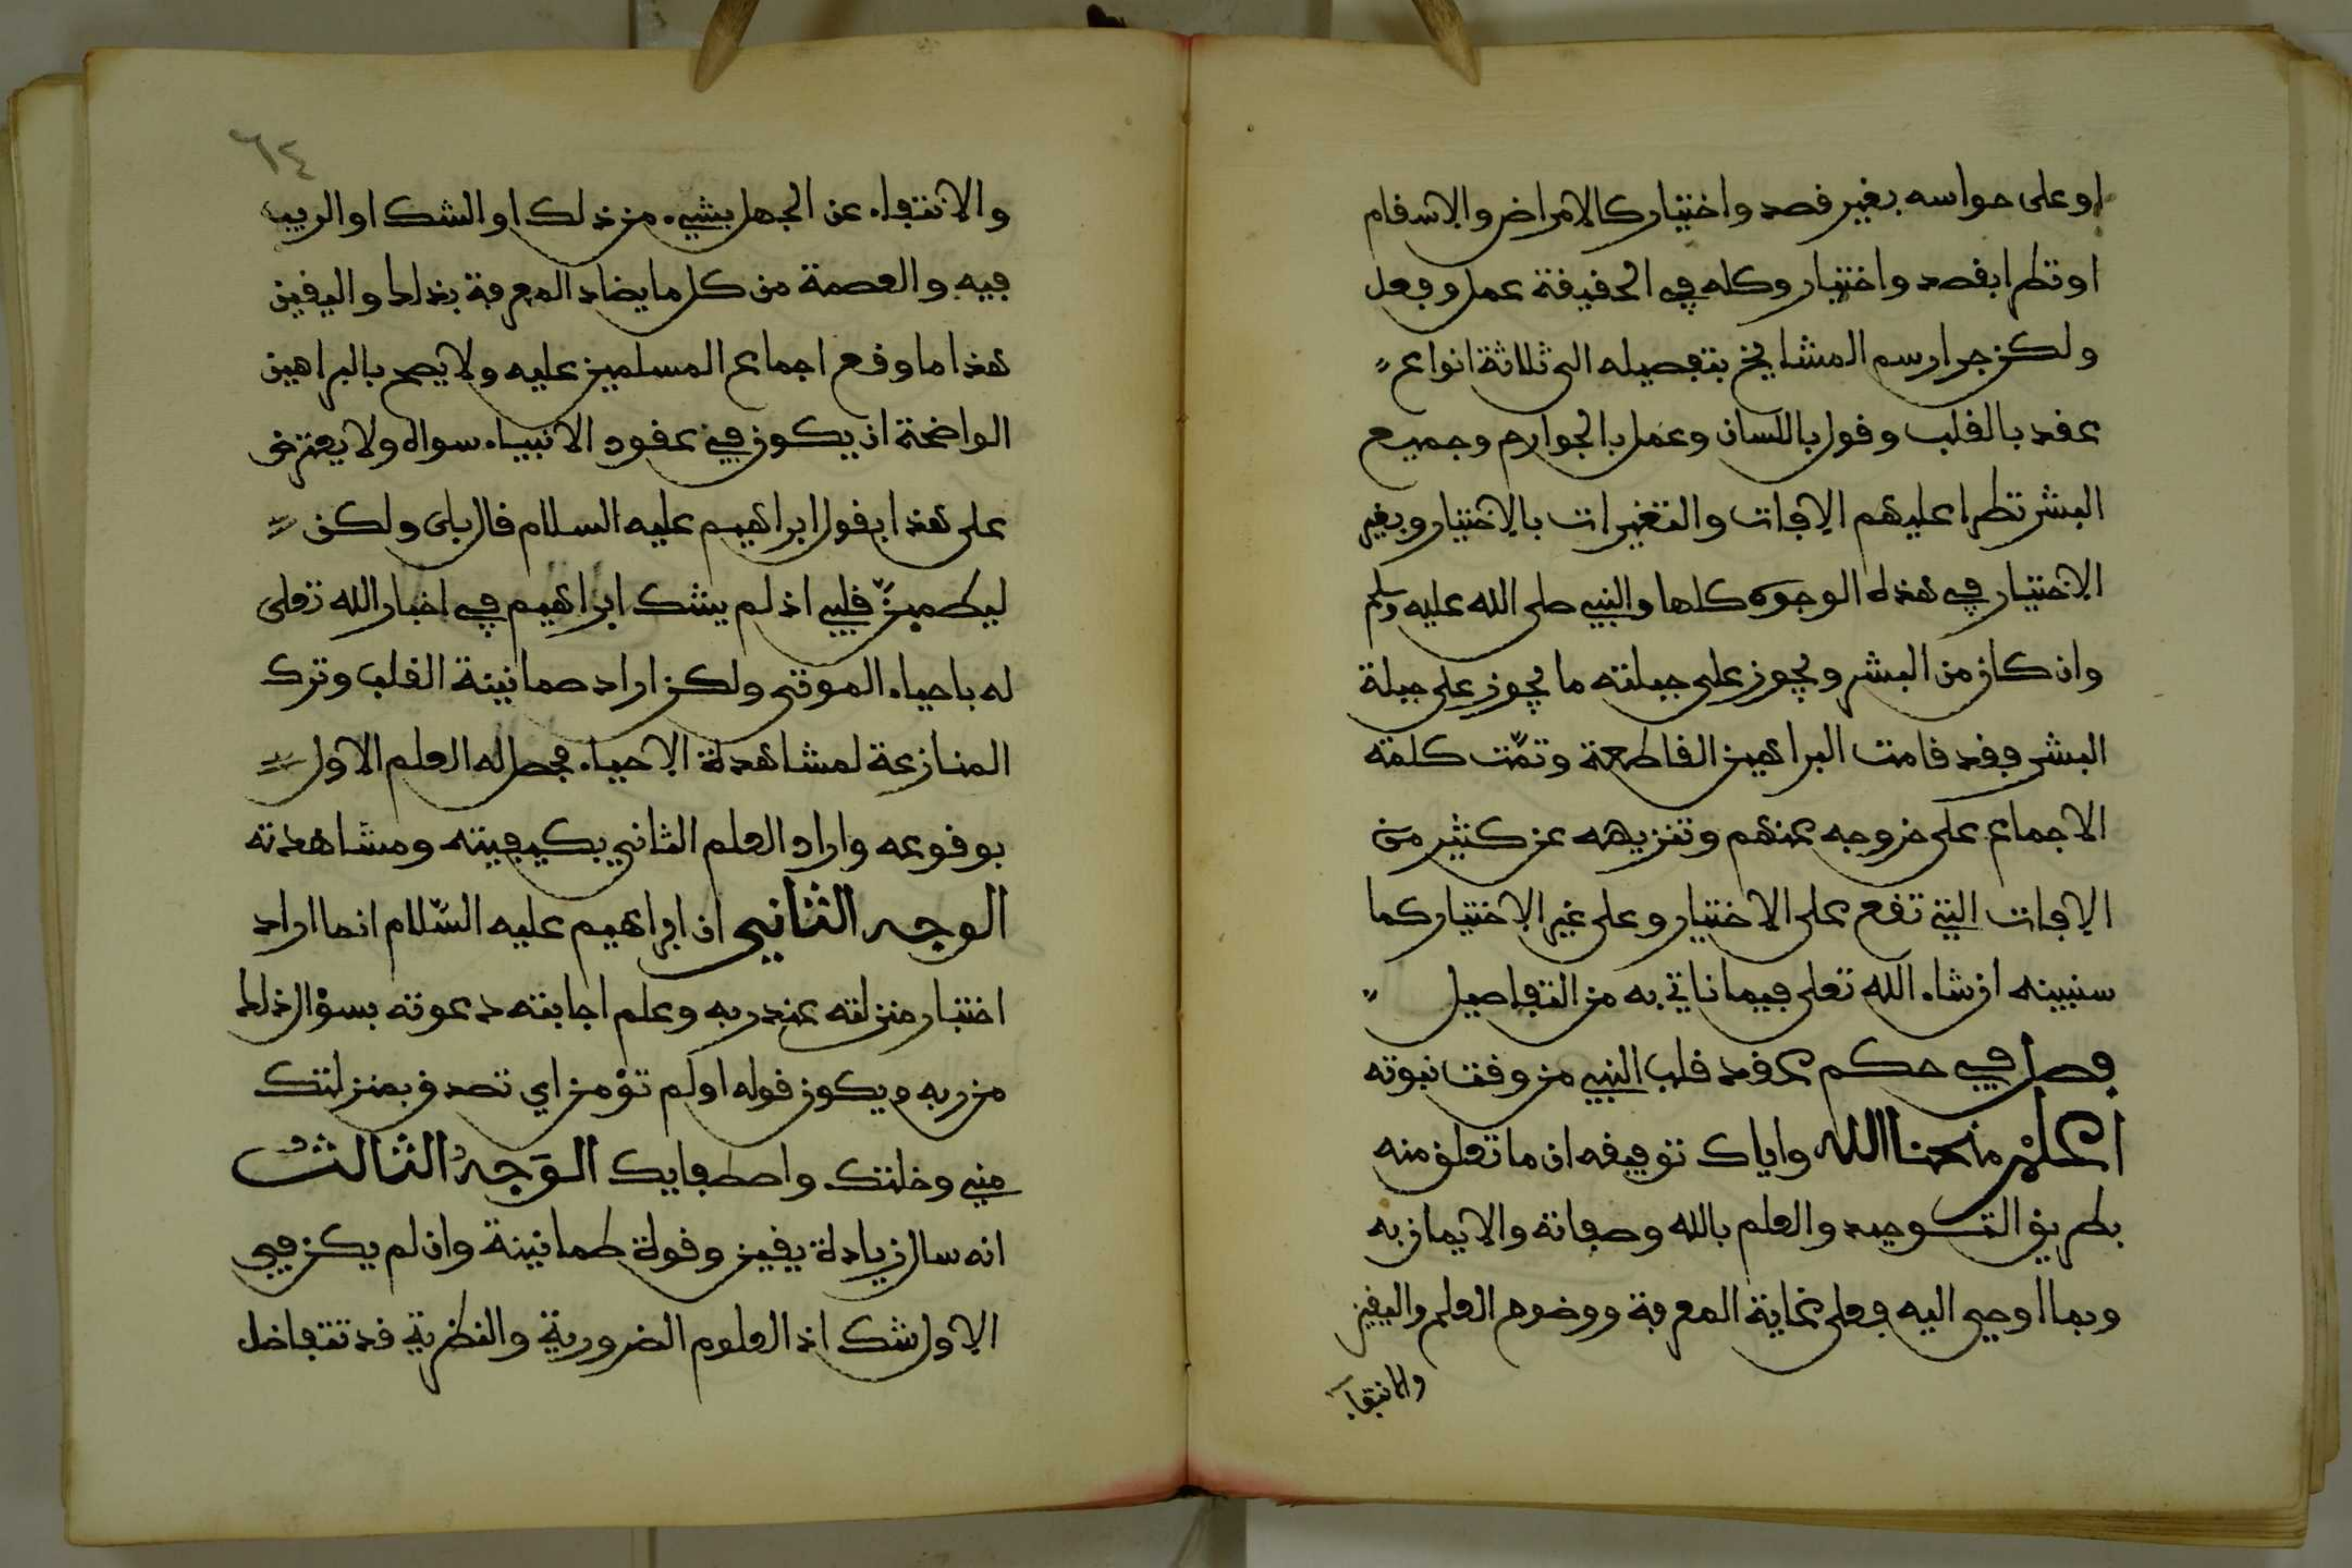 او على حواسه بغير قصد واختيار كالامراض والاسقام
او تطرا بقصد واختيار وكله في الحقيقة عمل وفعل
ولكن جرا رسم المشايخ بتفصيله الى ثلاثة انواع
عقد بالقلب وقول باللسان وعمل بالجوارح وجميع
البشر تطرا عليهم الافات والتغيرات بالاختيار وبغير
الاختيار في هذه الوجوه كلها والنبي صلى الله عليه وسلم
وان كان من البشر ويجوز على جبلته ما يجوز على جبلة
البشر فقد قامت البراهين القاطعة وتمّت كلمة
الاجماع على خروجه عنهم وتنزيهه عن كثير من
الافات التي تقع على الاختيار وعلى غير الاختيار كما
سنبينه ان شاء الله تعلى فيما ناتي به من التفاصيل
فصل في حكم عقد قلب النبي من وقت نبوته
اعلمْ منحنا الله واياك توفيقه ان ما تعلق منه
بطريق التوحيد والعلم بالله وصفاته والايمان به
وبما اوحي اليه فعلى غاية المعرفة ووضوح العلم واليقين
والانتفاء
٦٤
والانتفاء عن الجهل بشيء من ذلك او الشك او الريب
فيه والعصمة من كل ما يضاد المعرفة بذلك واليقين
هذا ما وقع اجماع المسلمين عليه ولا يصح بالبراهين
الواضحة ان يكون في عقود الانبياء سواه ولا يعترض
على هذا بقول ابراهيم عليه السلام قال بلى ولكن
ليطمينّ قلبي اذ لم يشك ابراهيم في اخبار الله تعلى
له باحياء الموتى ولكن اراد طمانينة القلب وترك
المنازعة لمشاهدة الاحياء فحصل له العلم الاول
بوقوعه واراد العلم الثاني بكيفيته ومشاهدته
الوجه الثاني ان ابراهيم عليه السّلام انما اراد
اختبار منزلته عند ربه وعلم اجابته دعوته بسؤال ذلك
من ربه ويكون قوله اولم تؤمن اي تصدق بمنزلتك
مني وخلتك واصطفايك الوَجهُ الثالثُ
انه سال زيادة يقين وقوة طمانينة وان لم يكن في
الاول شك اذ العلوم الضرورية والنظرية قد تتفاضل